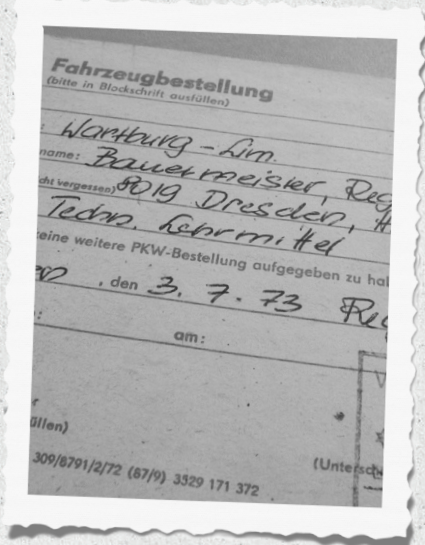 Fahrzeugbestellung
(bitte in Blockschrift ausfüllen)
: Wartburg - Lim.
name: Bauermeister, Reg
cht vergessen) 8019 Dresden, H
Techn. Lehrmittel
keine weitere PKW-Bestellung aufgegeben zu hal
, den 3. 7. 73 Reg
am:
üllen)
(Untersch
309/8791/2/72 (87/9) 3529 171 372